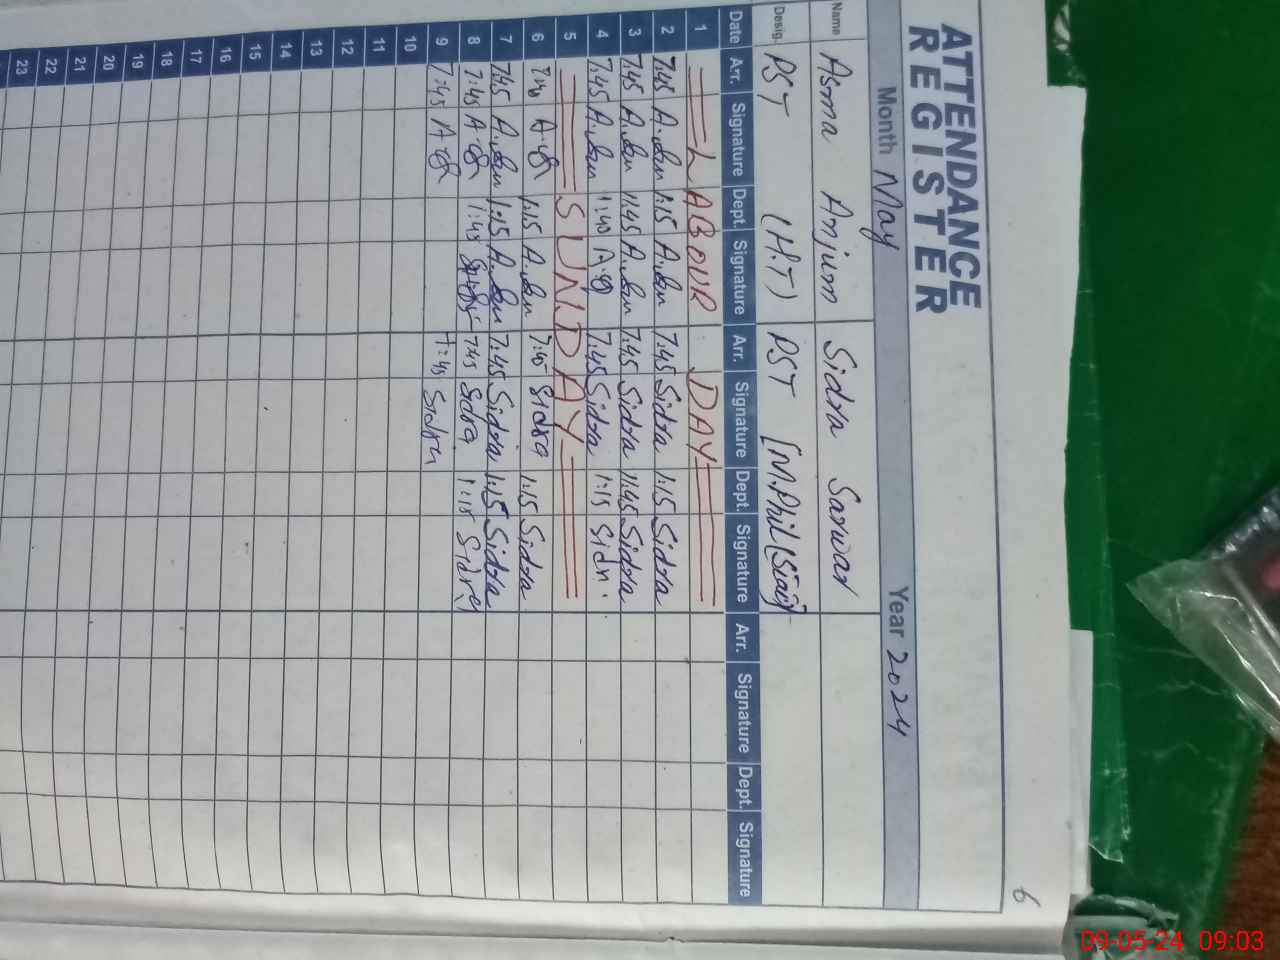 6
ATTENDANCE
REGISTER
Month May Year 2024
Name Asma Anjum Sidra Sarwar
Desig. PST (H.T) PST [M.Phil
Date Arr. Signature Dept. Signature Arr. Signature Dept. Signature Arr. Signature Dept. Signature
1 LABOUR DAY
2 7:45 1:15 7:45 Sidra 1:15 Sidra
3 7:45 11:45 7:45 Sidra 11:45 Sidra
4 7:45 1:40 7:45 Sidra 1:15 Sidr
5 SUNDAY
6 7:40 1:15 7:45 Sidra 1:15 Sidra
7 7:45 1:15 7:45 Sidra 1:15 Sidra
8 7:45 1:45 7:45 Sidra 1:15 Sidra
9 7:45 7:45 Sidra
10
11
12
13
14
15
16
17
18
19
20
21
22
23
09-05-24 09:03